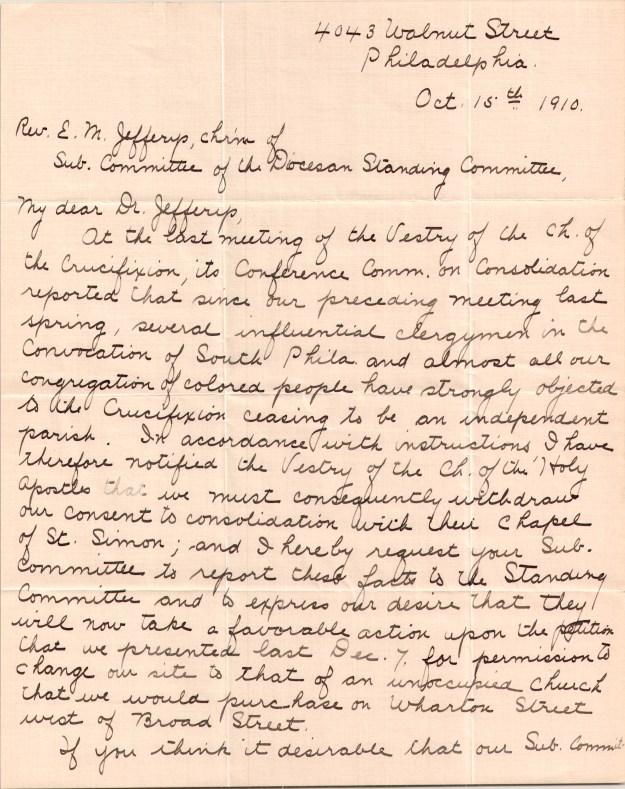 4043 Walnut Street
Philadelphia.
Oct. 15th 1910.
Rev. E. M. Jefferys, chr'm of
Sub. Committee of the Diocesan Standing Committee,
My dear Dr. Jefferys,
At the last meeting of the Vestry of the Ch. of
the Crucifixion, its Conference Comm. on Consolidation
reported that since our preceding meeting last
spring, several influential clergymen in the
Convocation of South Phila. and almost all our
congregation of colored people have strongly objected
to the Crucifixion ceasing to be an independent
parish. In accordance with instructions I have
therefore notified the Vestry of the Ch. of the Holy
Apostles that we must consequently withdraw
our consent to consolidation with their Chapel
of St. Simon; and I hereby request your Sub.
Committee to report these facts to the Standing
Committee and to express our desire that they
will now take a favorable action upon the petition
that we presented last Dec. 7. for permission to
change our site to that of an unoccupied church
that we would purchase on Wharton Street
west of Broad Street.
If you think it desirable that our Sub. Commit-